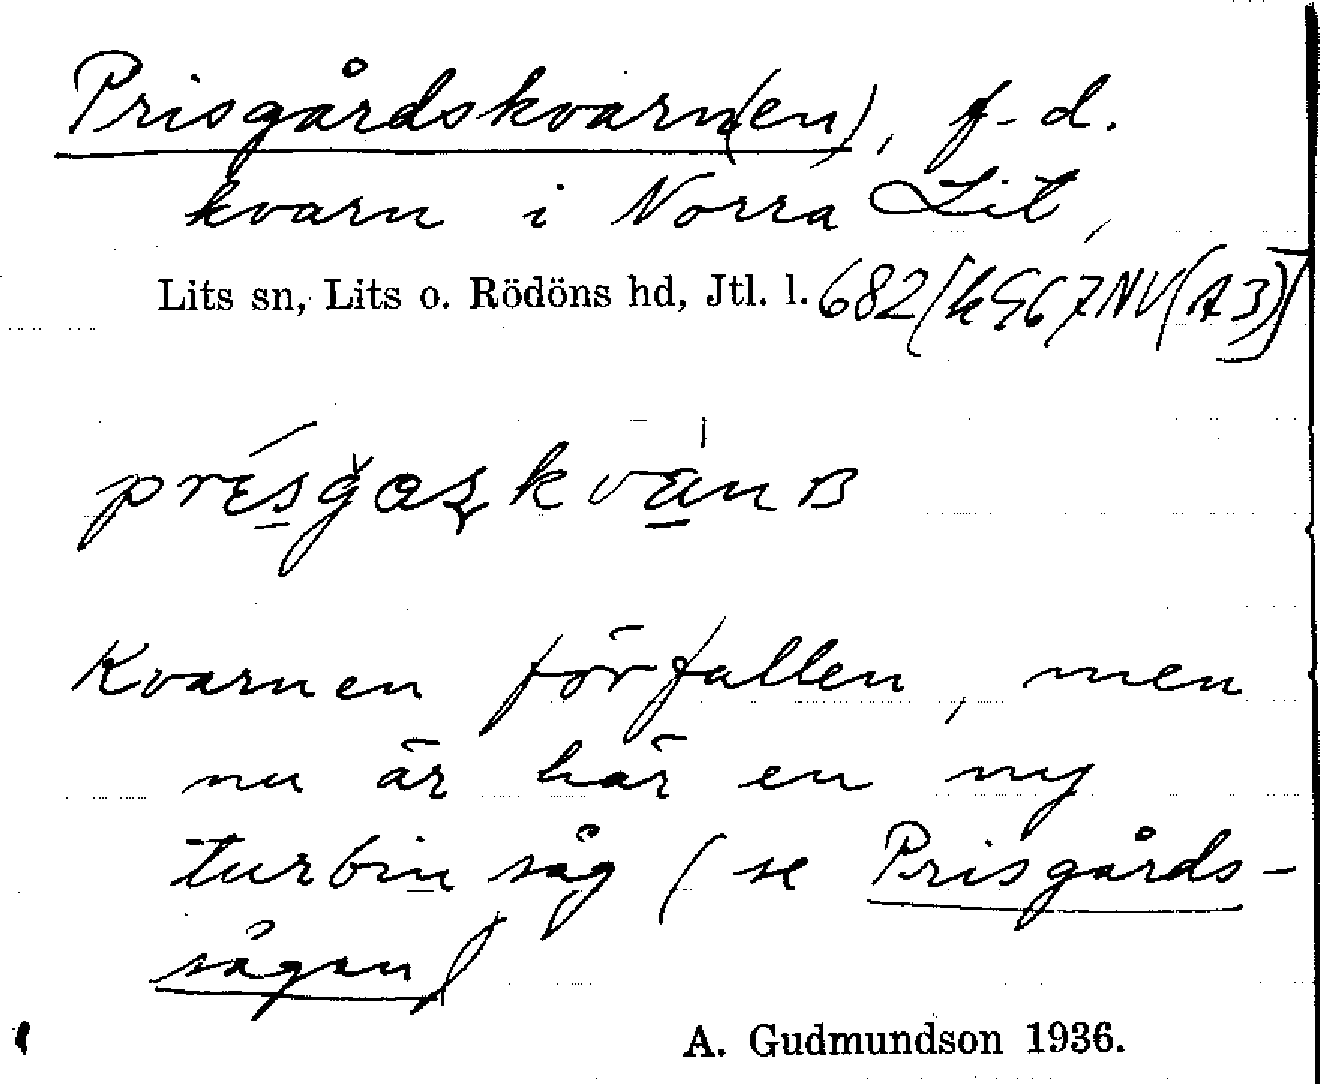 Prisgårdskvarn(en), f.d.
kvarn i Norra Lit,
Lits sn, Lits o. Rödöns hd, Jtl. l. 682
Kvarnen förfallen, men
nu är här en ny
turbinsåg (se Prisgårds-
sågen)
A. Gudmundson 1936.